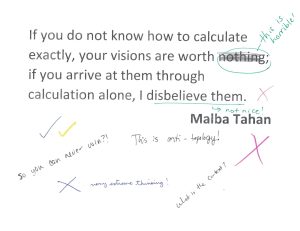 this is
horrible!
If you do not know how to calculate
exactly, your visions are worth nothing;
if you arrive at them through
calculation alone, I disbelieve them.
not nice!
Malba Tahan
So you can never win?!
This is anti-topology!
very extreme thinking!
What is the context?